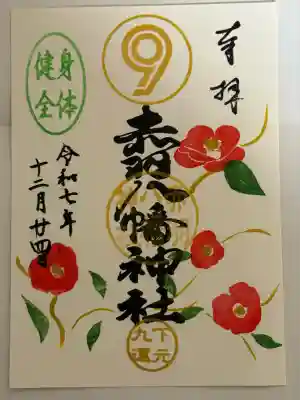 奉拝
9
赤羽八幡神社
下元
九運
身体
健全
令和七年
十二月廿四日